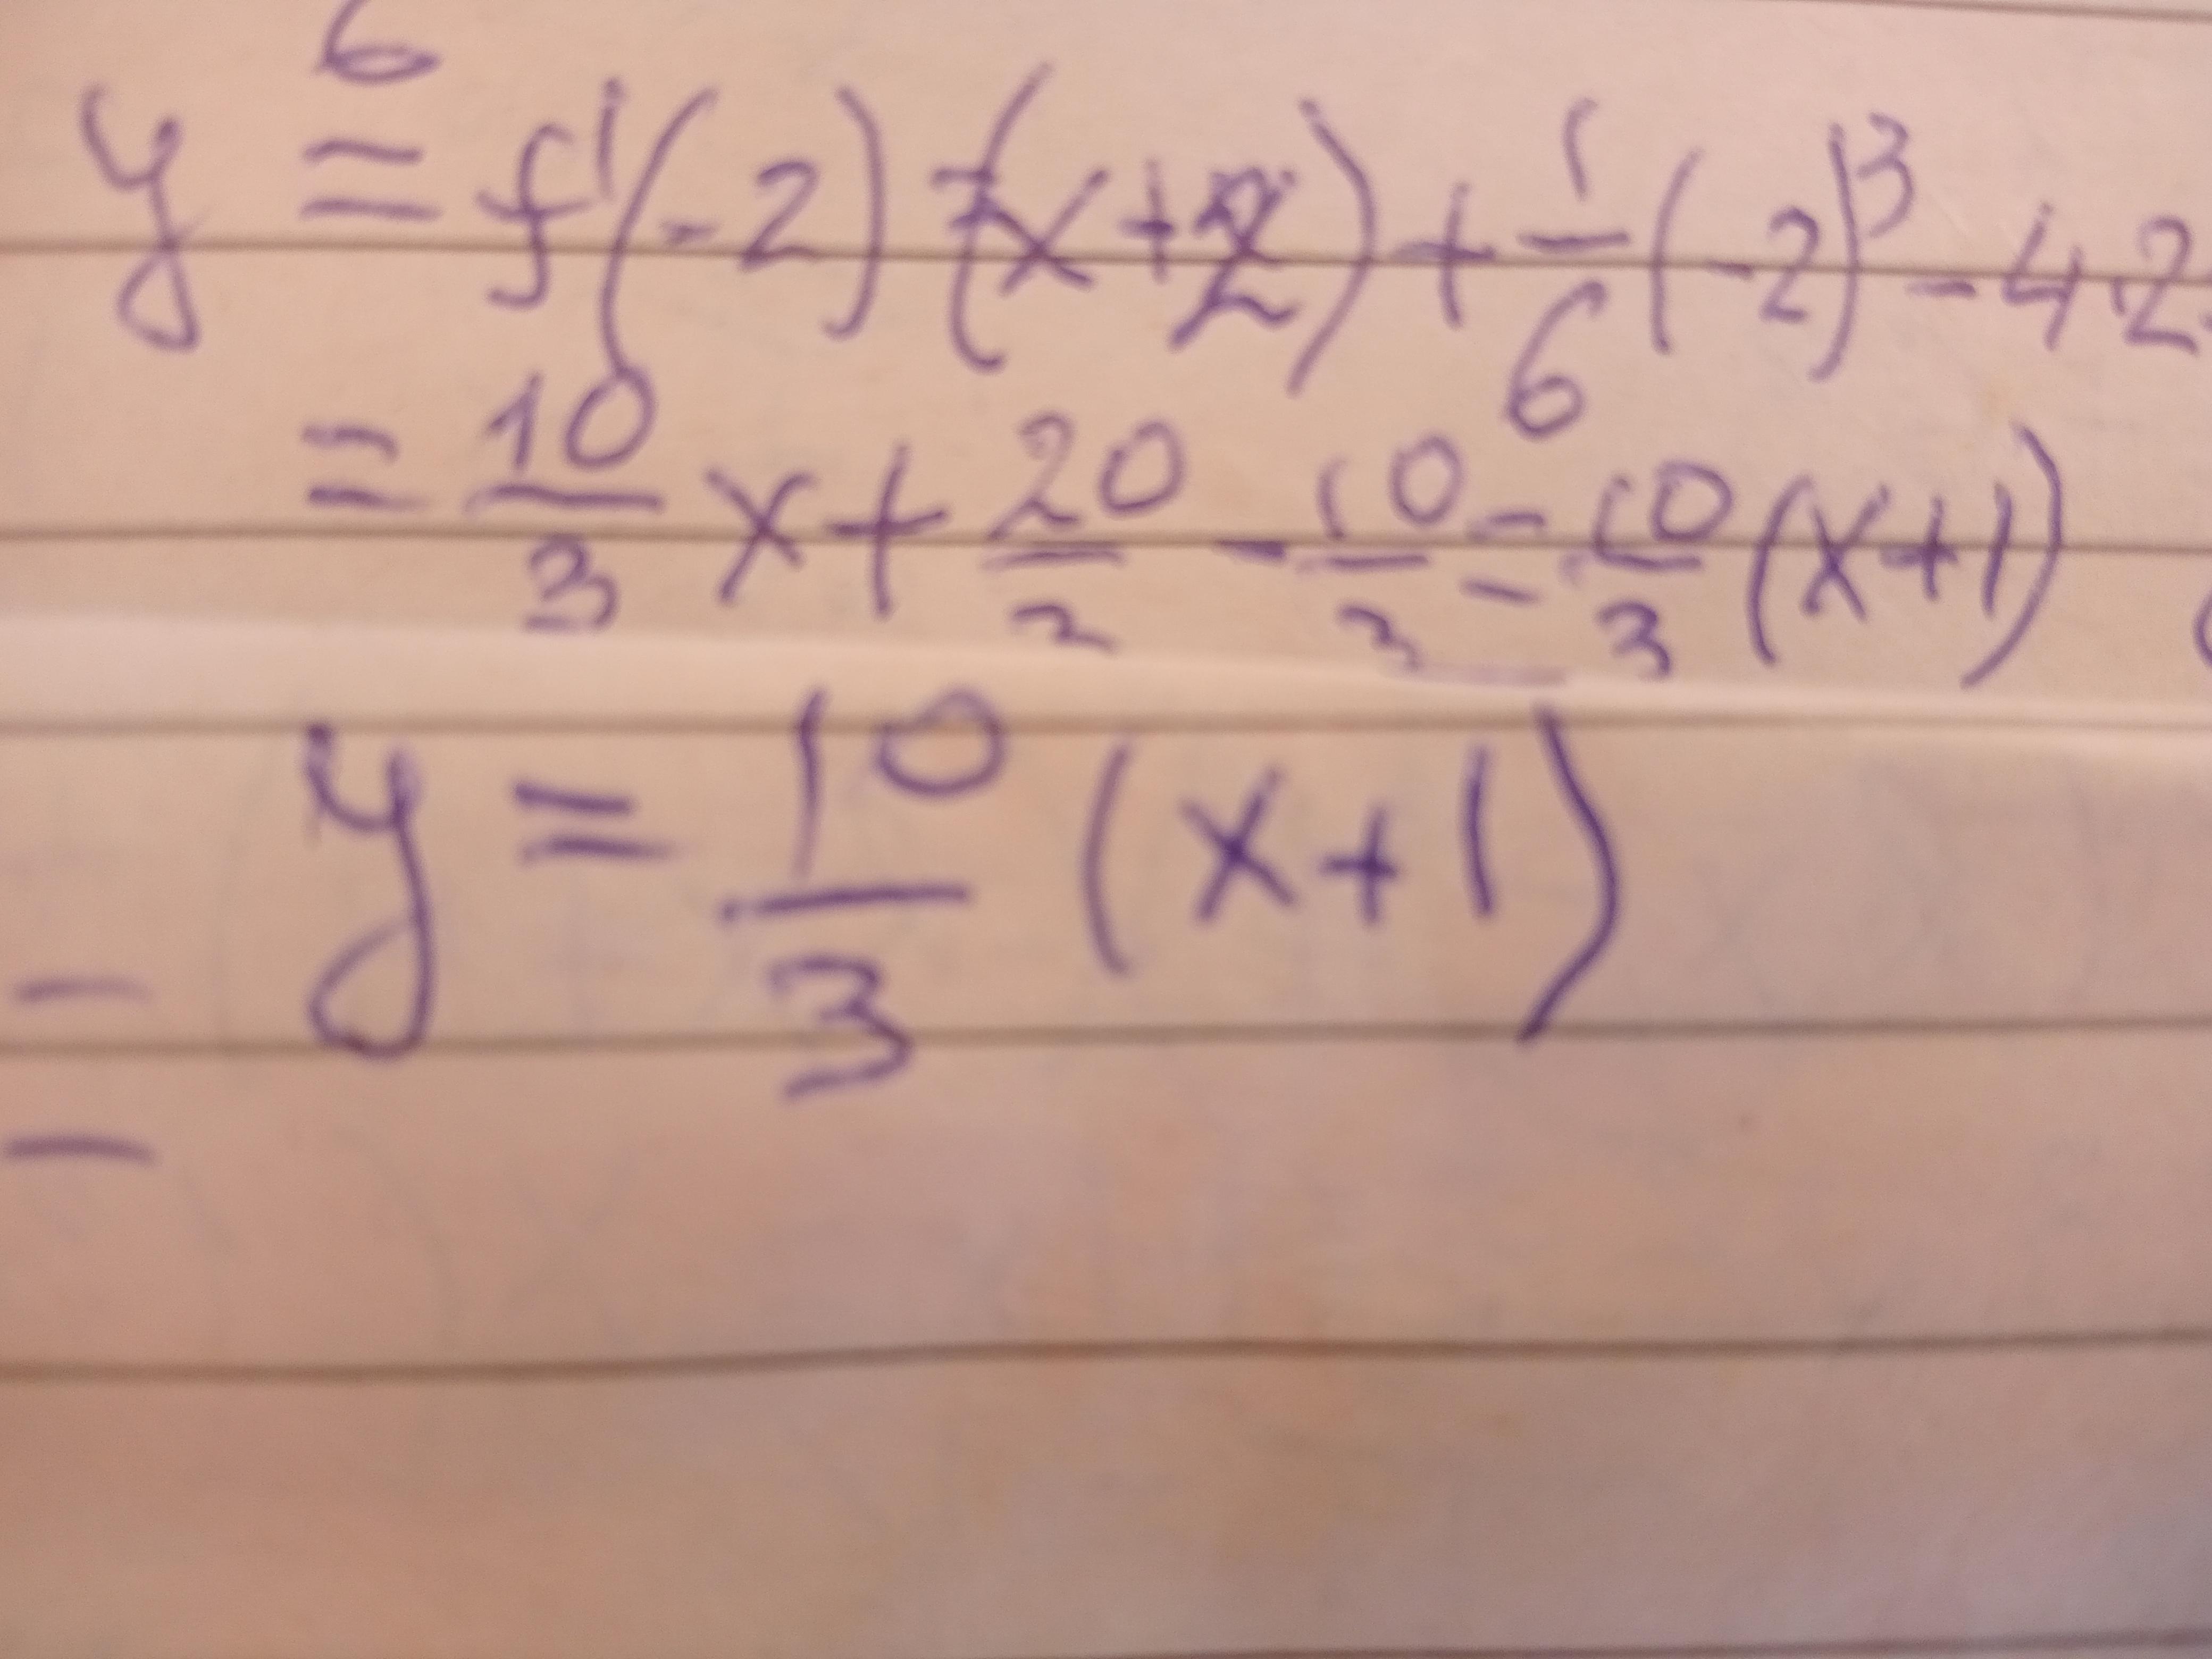 6
y = f'(-2) (x+2) + 1/6 (-2)³ - 4·2
= 10/3 x + 20/3 - 10/3 = 10/3 (x+1)
y = 10/3 (x+1)